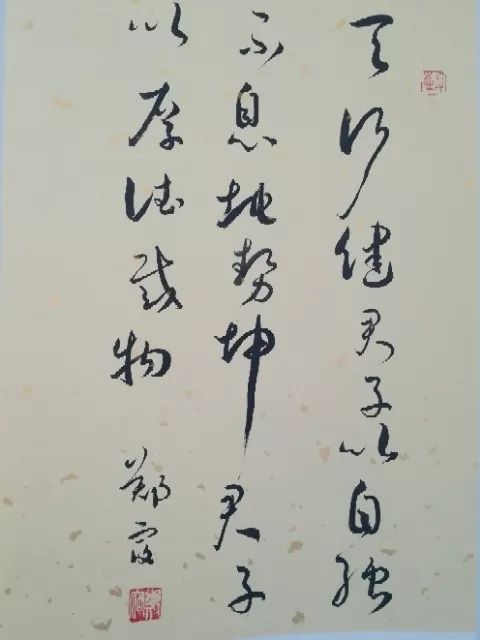 天行健君子以自强
不息地势坤君子
以厚德载物
郑霞